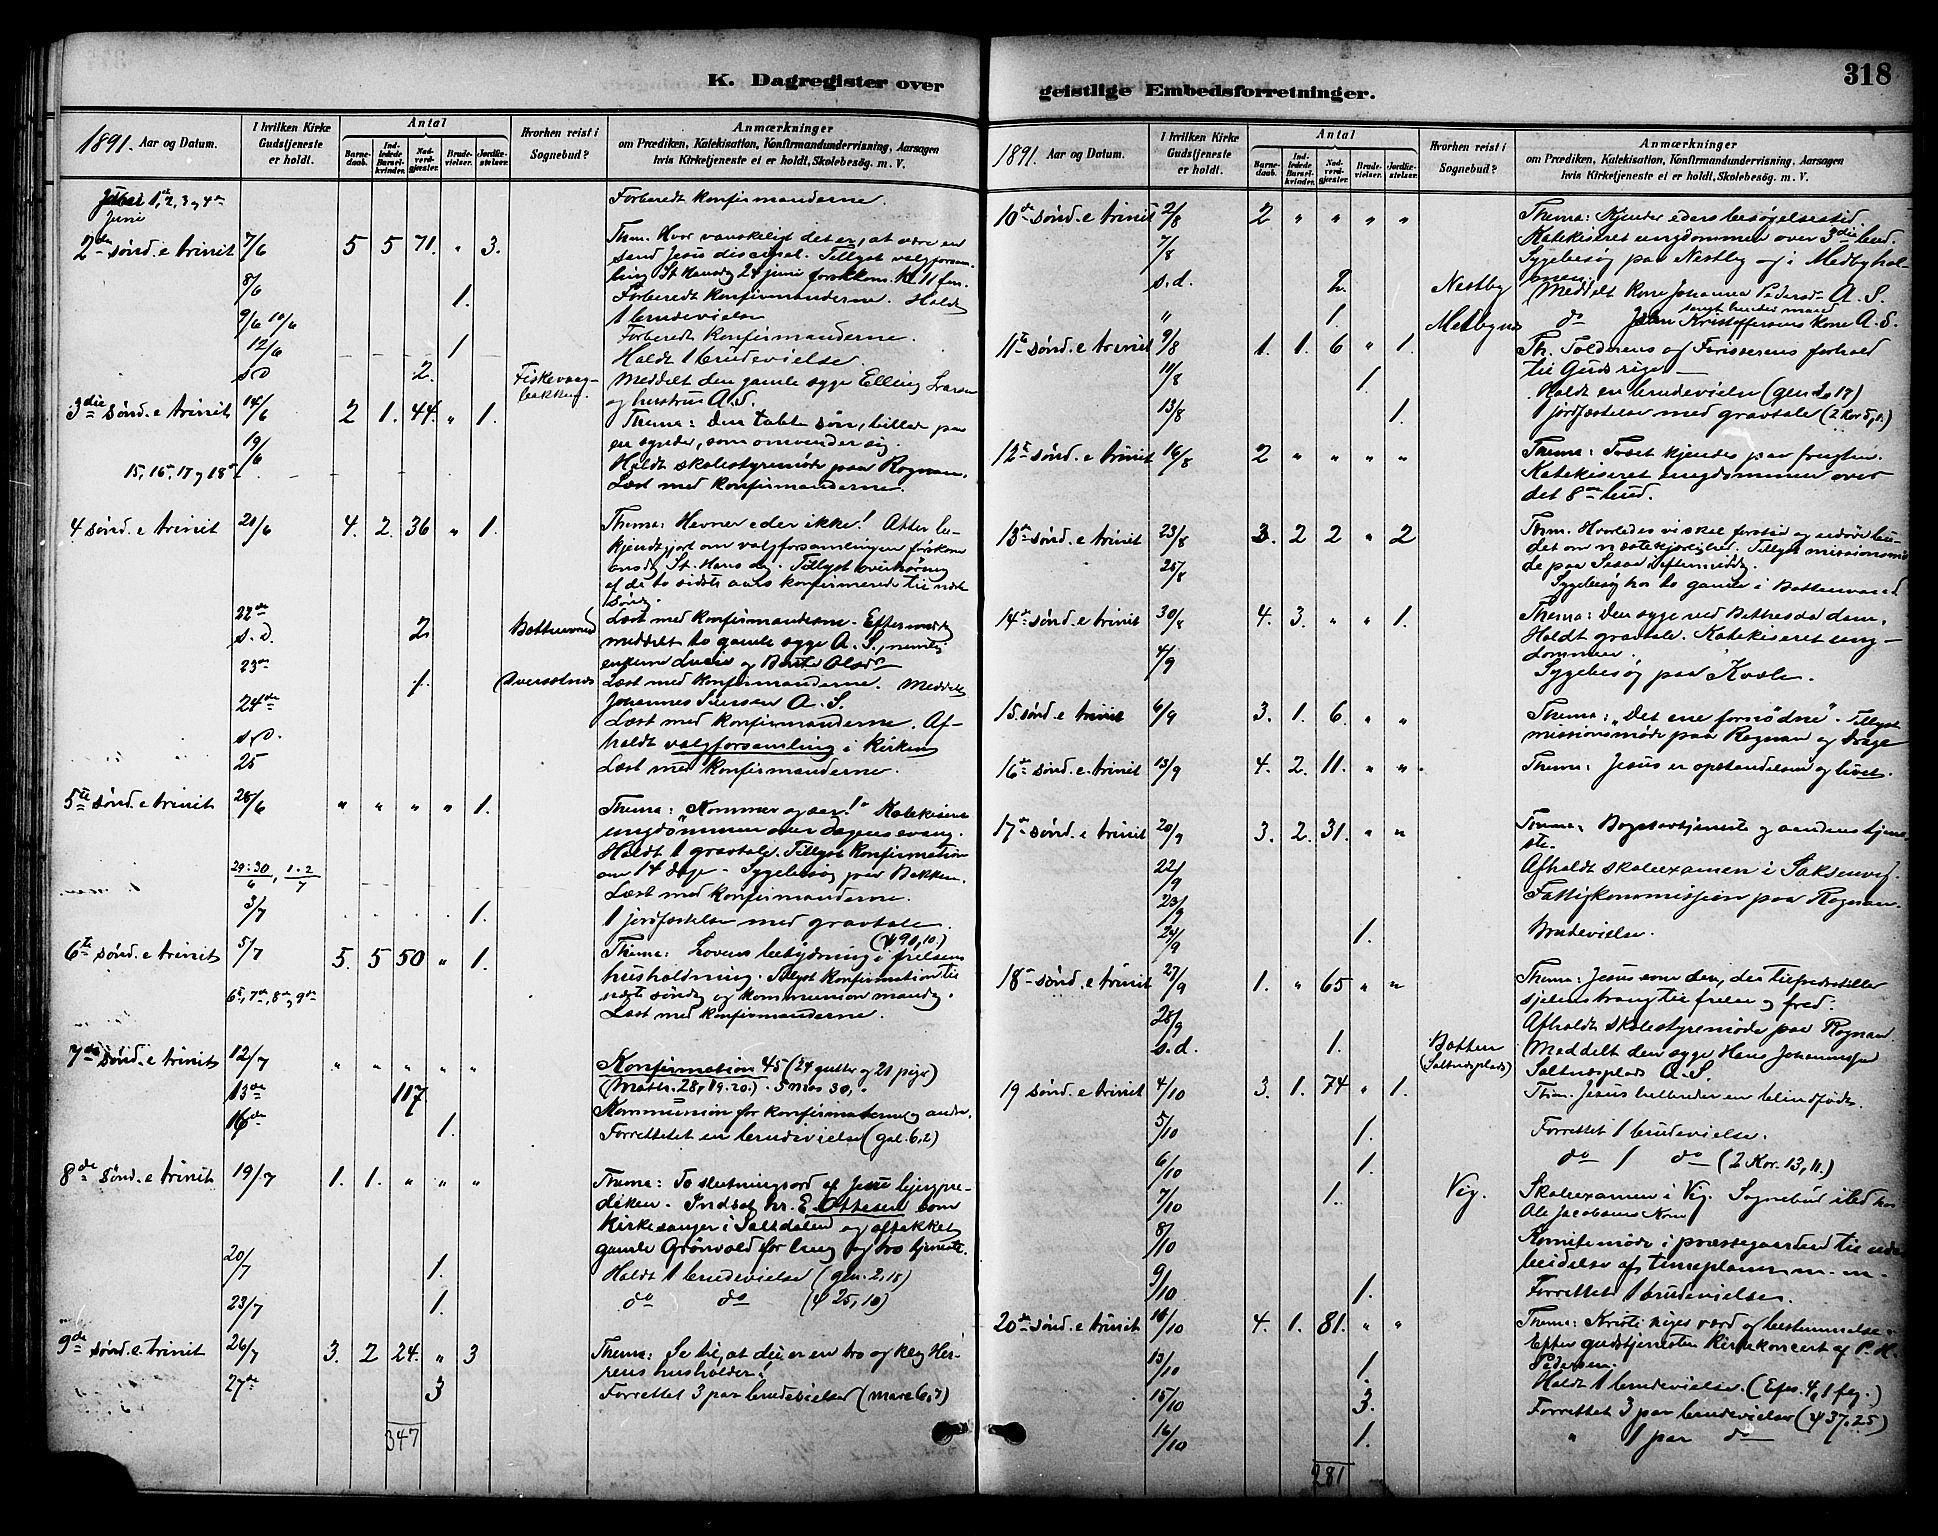 K. Dagregister over
1891. Aar og Datum.
I hvilken Kirke Gudstjeneste er holdt.
Antal
Barnedaab.
Indledede Barselkvinder.
Nadverdgjester.
Brudevielser.
Jordfæstelser.
Hvorhen reist i Sognebud?
Anmærkninger
om Prædiken, Katekisation, Konfirmandundervisning, Aarsagen
hvis Kirketjeneste ei er holdt, Skolebesøg. m. V.
1, 2, 3 og 4de Juni Forberedt konfirmanderne.
2den sønd. e trinit 7/6 5 5 71. " 3. Thm. Hvor vanskeligt det er, at være en
sand Jesu discipel. Tillyst valgforsam-
ling St Hansdg 24 juni førstkom. Kl 11 fm.
8/6 1. Forberedt konfirmanderne. Holdt
1 brudevielse
9/6 10/6 Forberedt konfirmanderne.
12/6 1 Holdt 1 brudevielse.
s.d 2. Fiskevaag-
bakken. Meddelt den gamle syge Elling Larsen
og hustru A.S.
3die sønd. e trinit 14/6 2 1. 44. " 1. Thema: Den tabte søn, billede paa
en synder, som omvender sig.
19/6 Holdt skolestyremøde paa Rognan.
15, 16de, 17 og 18de Læst med konfirmanderne.
4 sønd. e trinit 21/6 4. 2. 36 " 1. Thema: Hevner eder ikke! Atter be-
kjendtgjort om valgforsamlingen førstkom
onsdg St. Hans dg. Tillyst overhøring
af de to sidste aars konfirmerede til næste
Søndg.
22de Læst med konfirmanderne. Eftermiddg
s.d. 2 Bottenvand meddelt to gamle syge A.S., nemlig
enkerne Lucie og Berte Olsd
23de 1. Læst med konfirmanderne. Meddelt
Johannes A.S.
24de Læst med konfirmanderne. Af-
s.d. holdt valgforsamling i kirken
25 Læst med konfirmanderne.
5te sønd. e trinit 28/6 " " " " 1. Thema: "Kommer og ser!" Katekiseret
ungdommen over dagens evang.
Holdt 1 gravtale. Tillyst konfirmation
om 14 dage. Sygebesøg paa Bakken.
29. 30/6, 1. 2/7 Læst med konfirmanderne.
3/7 1. 1 jordfæstelse med gravtale.
(ψ 90, 10.)
6te sønd. e trinit 5/7 5. 5 50 " 1. Thema: Lovens betydning i frelsens
husholdning. Tillyst konfirmation til
næste søndg og kommunion mandg.
6te, 7de, 8de og 9de Læst med konfirmanderne.
7de sønd. e trinit 12/7 " " " " " Konfirmation 45 (24 gutter og 21 piger)
(Math. 28, 19. 20.) . 5 mos 30,
13de 117 Kommunion for konfirmaterne og andre.
16de 1. Forrettet en brudevielse (gal. 6, 2)
8de sønd. e trinit 19/7 1. 1. " " " Thema: To slutningsord af Jesu bjergpræ-
diken. Indsat hr. E. Ottesen som
kirkesanger i Saltdalen og aftakket
gamle Grönvold for lang og tro tjeneste.
20/7 1. Holdt 1 brudevielse (gen. 2, 18)
23/7 1. do do (ψ 25, 10)
9de sønd. e. trinit 26/7 3. 2 24. " 3 Thema: Se til, at du er en tro og klog Her-
rens husholder!
27de 3 Forrettet 3 par brudevielser (marc 6, 3)
347
geistlige Embedsforretninger.
318
1891. Aar og Datum.
I hvilken Kirke Gudstjeneste er holdt.
Antal
Barnedaab.
Indledede Barselkvinder.
Nadverdgjester.
Brudevielser.
Jordfæstelser.
Hvorhen reist i Sognebud?
Anmærkninger
om Prædiken, Katekisation, Konfirmandundervisning, Aarsagen
hvis Kirketjeneste ei er holdt, Skolebesøg. m. V.
10de sønd. e trinit 2/8 2 " " " " Thema: Kjender eders besøgelsestid
Katekiseret ungdommen over 3die bud.
7/8 Sygebesøg paa Nestby og i Medbyhol-
men.
s.d. 2. Nestby Meddelt kone Johanna Pedersd A.S.
" 1. do Kristoffersens kone A.S.
11te sønd. e trinit 9/8 1. 1. 6 " 1. Th. Tolderens og Farisæerens forhold
til Guds rige.
11/8 1. Holdt en brudevielse (gen 2, 17)
13/8 1. 1 jordfæstelse med gravtale (2 Kor 5, 1.)
12te sønd. e trinit 16/8 2 " " " " Thema: Træet kjendes paa frugten.
Katekiseret ungdommen over
det 8de bud.
13de sønd. e trinit 23/8 3. 2 2 " 2 Thm. Hvorledes vi skal forstaa og udøve bu-
det om næstekjærlighed. Tillyst missionsmø-
de paa eftermiddg
25/8 Sygebesøg hos to gamle i Bottenvand
14de sønd. e trinit 30/8 4. 3. " " 1. Thema: Den syge ved Bethesda dam.
Holdt gravtale. Katekiseret ung-
dommen.
4/9 Sygebesøg paa
15. sønd. e trinit 6/9 3. 1. 6. " " Thema: "Det ene fornødne". Tillyst
missionsmøde paa Rognan og
16de sønd. e. trinit 13/9 4. 2. 11. " " Thema: Jesus er opstandelsen og livet.
17de sønd. e trinit 20/9 3. 2. 31. " " Thema: Bogstavtjeneste og aandens tjene-
ste.
22/9 Afholdt skoleexamen i Saksenvig.
23/9 Fattigkommission paa Rognan.
24/9 1. Brudevielse.
18de sønd. e trinit 27/9 1. " 65 " " Thema: Jesus som den, der tilfredsstiller
sjelens trang til frelse og fred.
28/9 Afholdt skolestyremøde paa Rognan
s.d. 1. Botten
(Saltnesplads) Meddelt den syge Hans Johannessen
Saltnesplads A.S.
19 sønd. e trinit 4/10 3. 1. 74 " 1. Thm. Jesus helbreder en blindfødt.
5/10 1. Forrettet 1 brudevielse.
6/10 1. do 1 do (2 Kor. 13, 11.)
7/10 1. Vig. Skoleexamen i Vig. Sognebud sted hos
Ole Jacobsens Kone
8/10 Komitemøde i præstegaarden til udar-
beidelse af timeplaner m. m.
9/10 1. Forrettet 1 brudevielse.
20de sønd. e trinit 11/10 4. 1. 81. " " Thema: Kristi riges værd og bestemmelse.
Efter gudstjenesten kirkekoncert af P. H.
Pedersen.
13/10 1. Holdt 1 brudevielse. (Efes. 4, 1 flg.)
15/10 3. Forrettet 3 par brudevielser (ψ 37, 25)
16/10 1. " 1 par do
281